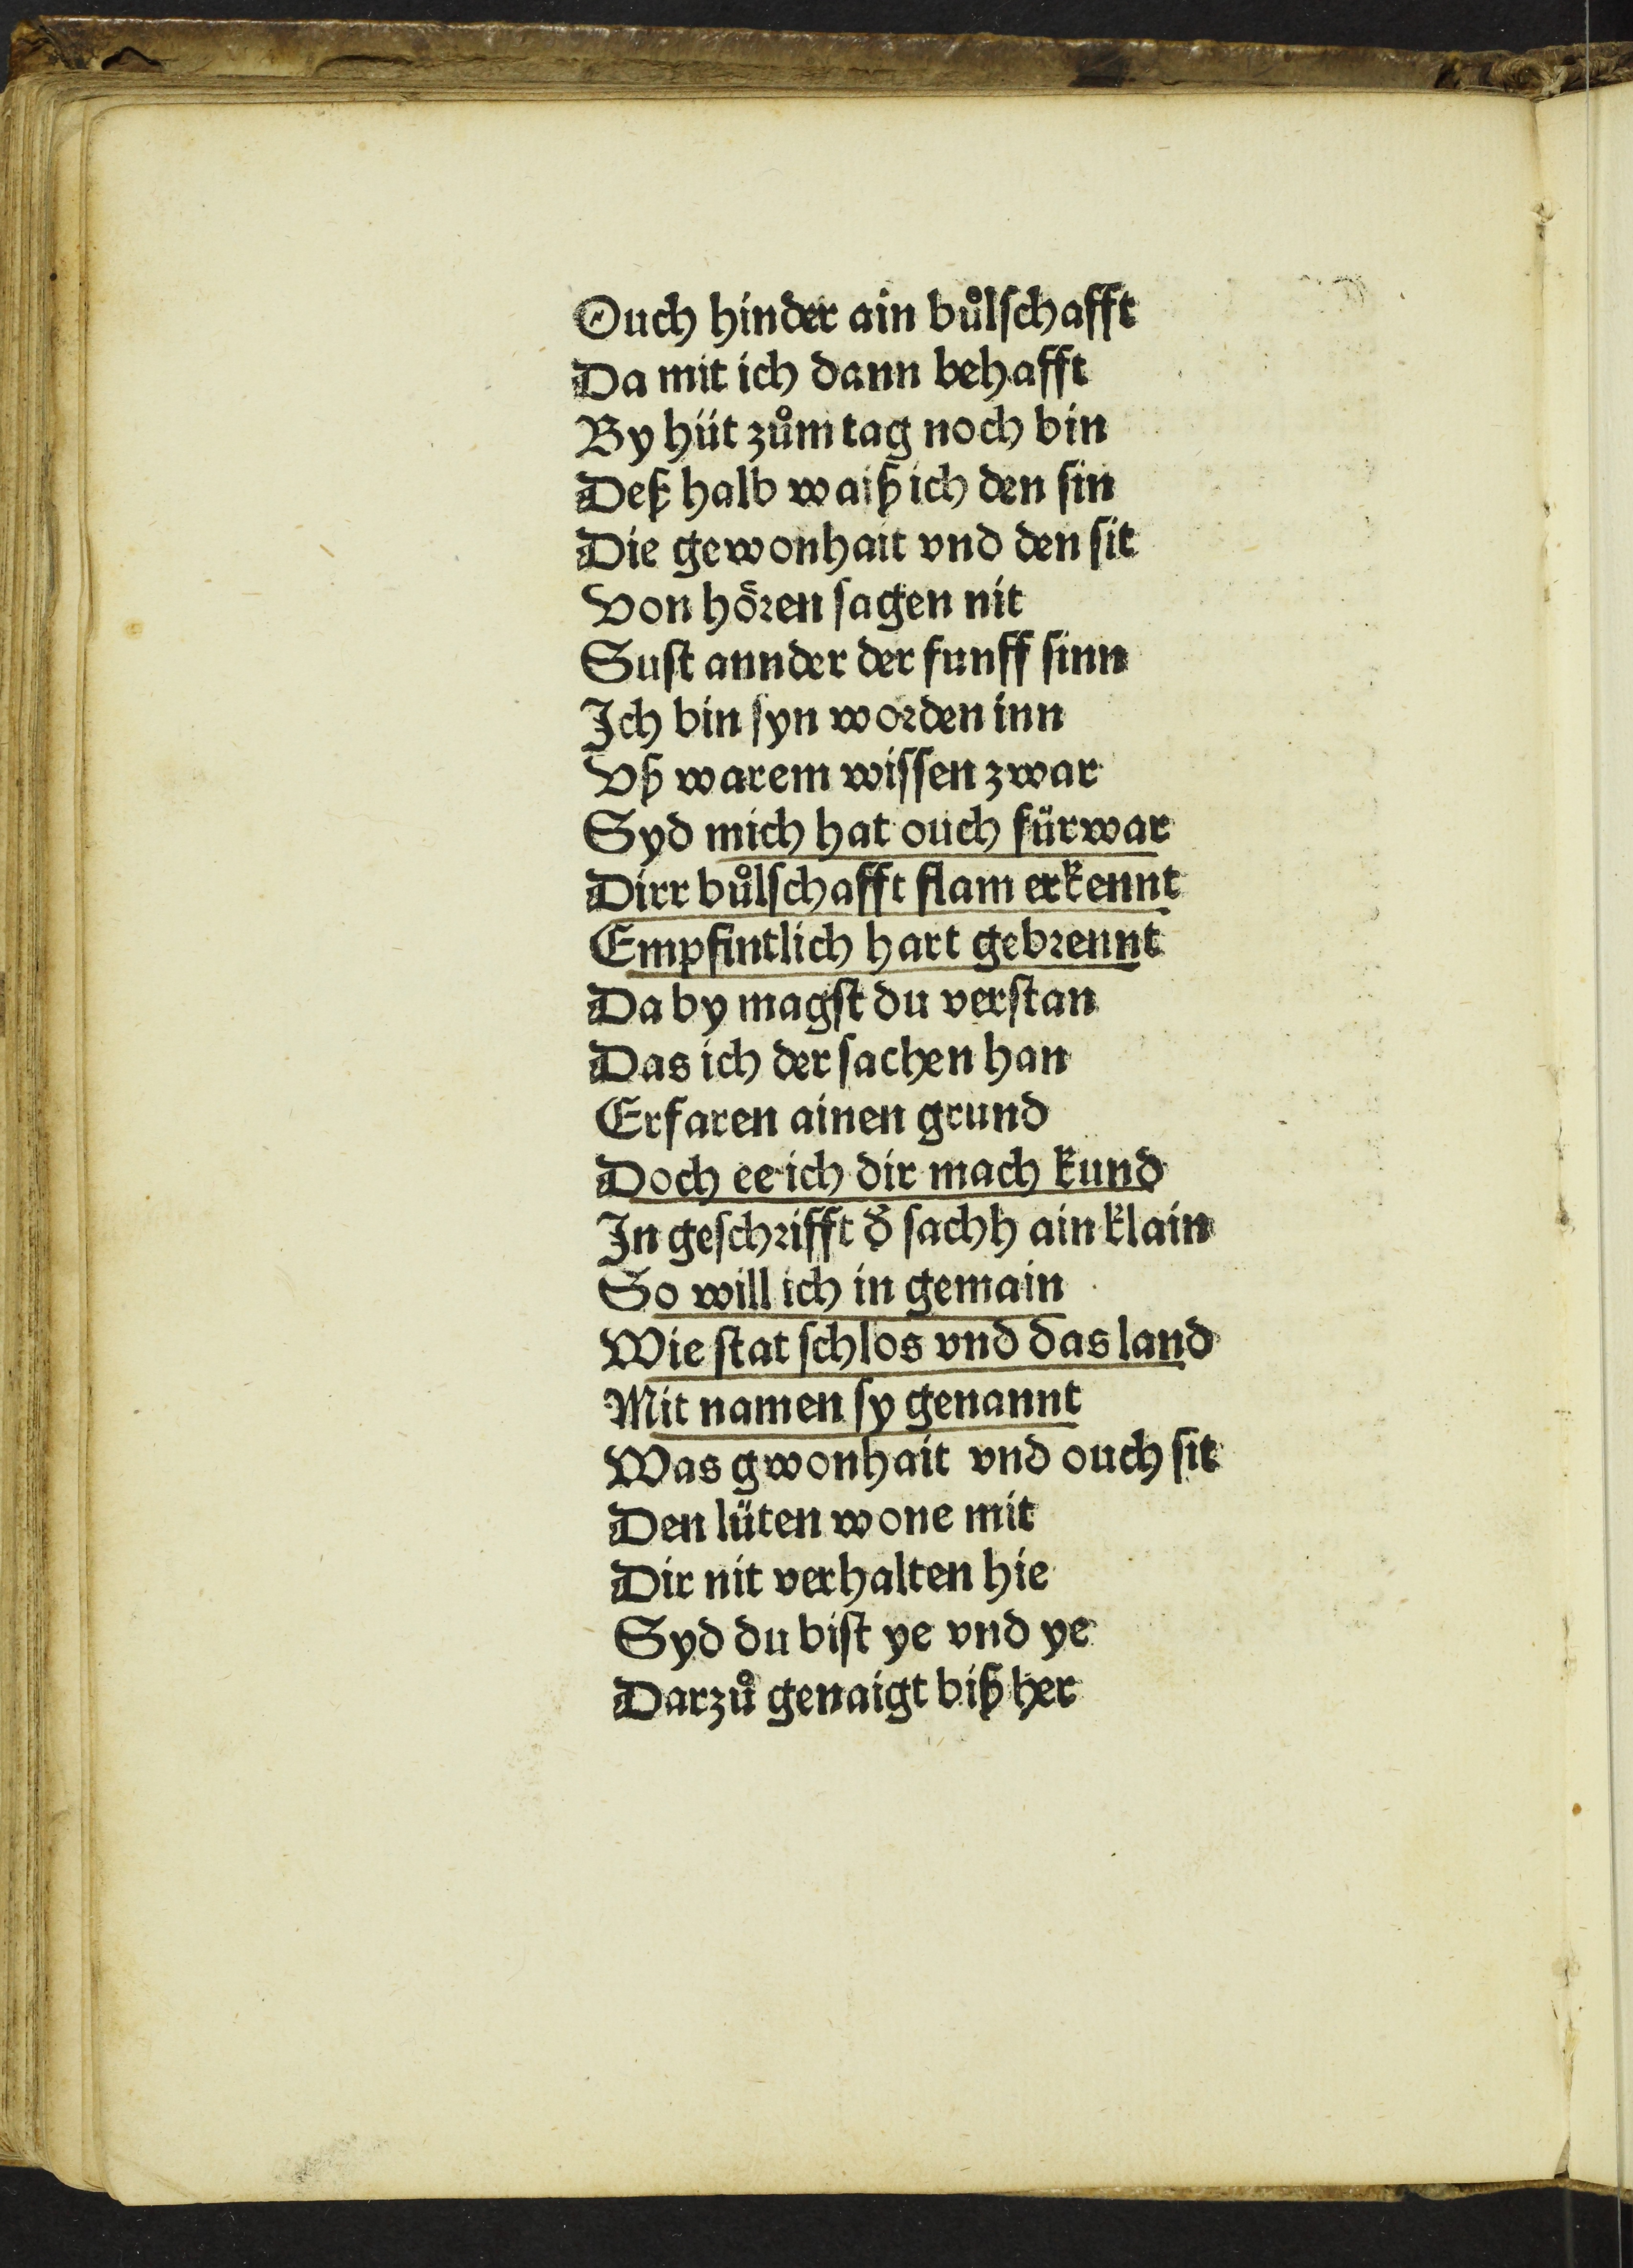 Ouch hinder ain bůlſchafft
Da mit ich dann behafft
By hüt zům tag noch bin
Deß halb waiß ich den ſin
Die gewonhait vnd den ſit
Von hoͤꝛen ſagen nit
Suſt annder der funff ſinn
Ich bin ſyn woꝛden inn
Vß warem wiſſen zwar
Syd mich hat ouch fürwar
Dirr bůlſchafft flam erkennt
Empfintlich hart gebꝛennt
Da by magſt du verſtan
Das ich der ſachen han
Erfaren ainen grund
Doch ee ich dir mach kund
In geſchꝛifft d̕ ſachh ain klain
So will ich in gemain
Wie ſtat ſchlos vnd das land
Mit namen ſy genannt
Was gwonhait vnd ouch ſit
Den lüten wone mit
Dir nit verhalten hie
Syd du biſt ye vnd ye
Darzů genaigt biß her